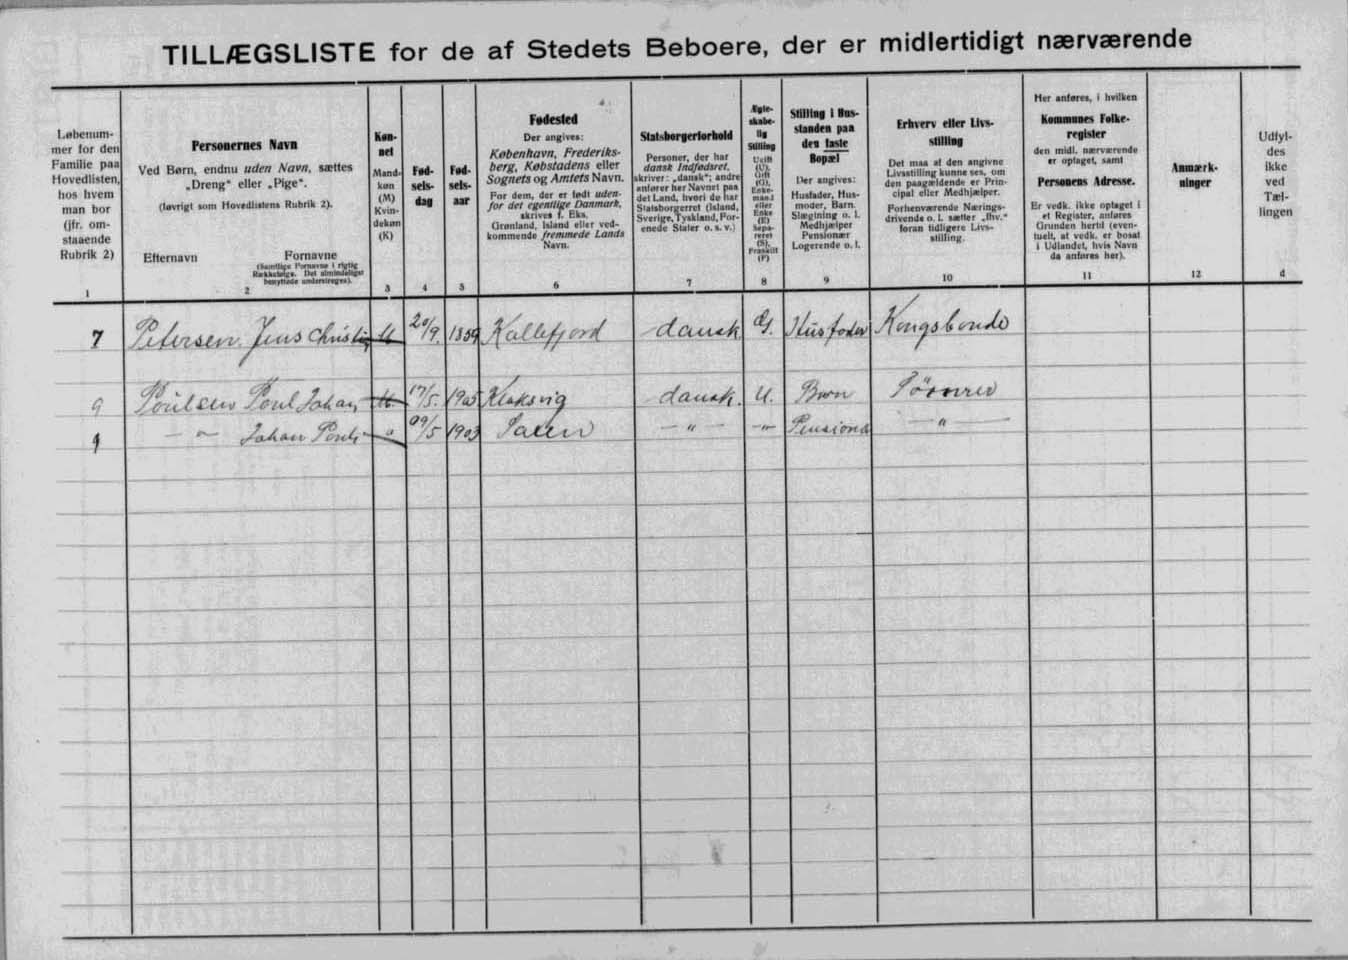 TILLÆGSLISTE for de af Stedets Beboere, der er midlertidigt nærværende
Løbenum-
mer for den
Familie paa
Hovedlisten,
hos hvem
man bor
(jfr. om-
staaende
Rubrik 2)
1
Personernes Navn
Ved Børn, endnu uden Navn, sættes
„Dreng“ eller „Pige“.
(Iøvrigt som Hovedlistens Rubrik 2).
Efternavn
Fornavne
(Samtlige Fornavne i rigtig
Rækkefølge. Det almindeligst
benyttede understreges).
2
Køn-
net
Mand-
køn
(M)
Kvin-
dekøn
(K)
3
Fød-
sels-
dag
4
Fød-
sels-
aar
5
Fødested
Der angives:
København, Frederiks-
berg, Købstadens eller
Sognets og Amtets Navn.
For dem, der er født uden-
for det egentlige Danmark,
skrives f. Eks.
Grønland, Island eller ved-
kommende fremmede Lands
Navn.
6
Statsborgerforhold
Personer, der har
dansk Indfødsret,
skriver: „dansk“; andre
anfører her Navnet paa
det Land, hvori de har
Statsborgerret (Island,
Sverige, Tyskland, For-
enede Stater o. s. v.)
7
Ægte-
skabe-
lig
Stilling
Ugift
(U),
Gift
(G),
Enke-
mand
eller
Enke
(E)
Sepa-
reret
(S),
Fraskilt
(F)
8
Stilling i Hus-
standen paa
den faste
Bopæl
Der angives:
Husfader, Hus-
moder, Barn,
Slægtning o. l.
Medhjælper
Pensionær
Logerende o. l.
9
Erhverv eller Livs-
stilling
Det maa af den angivne
Livsstilling kunne ses, om
den paagældende er Prin-
cipal eller Medhjælper.
Forhenværende Nærings-
drivende o. l. sætter „fhv.“
foran tidligere Livs-
stilling.
10
Her anføres, i hvilken
Kommunes Folke-
register
den midl. nærværende
er optaget, samt
Personens Adresse.
Er vedk. ikke optaget i
et Register, anføres
Grunden hertil (even-
tuelt, at vedk. er bosat
i Udlandet, hvis Navn
da anføres her).
11
Anmærk-
ninger
12
Udfyl-
des
ikke
ved
Tæl-
lingen
d
7 Petersen Jens Christia M 20/9. 1859 Kallefjord dansk G. Husfader Kongsbonde
9 Poulsen Poul Johan M. 17/5. 1905 Klaksvig dansk. U. Barn Tömrer
9 — „ — Johan Pouli „ 09/5 1903 — „ — — „ — Pensionæ — „ —